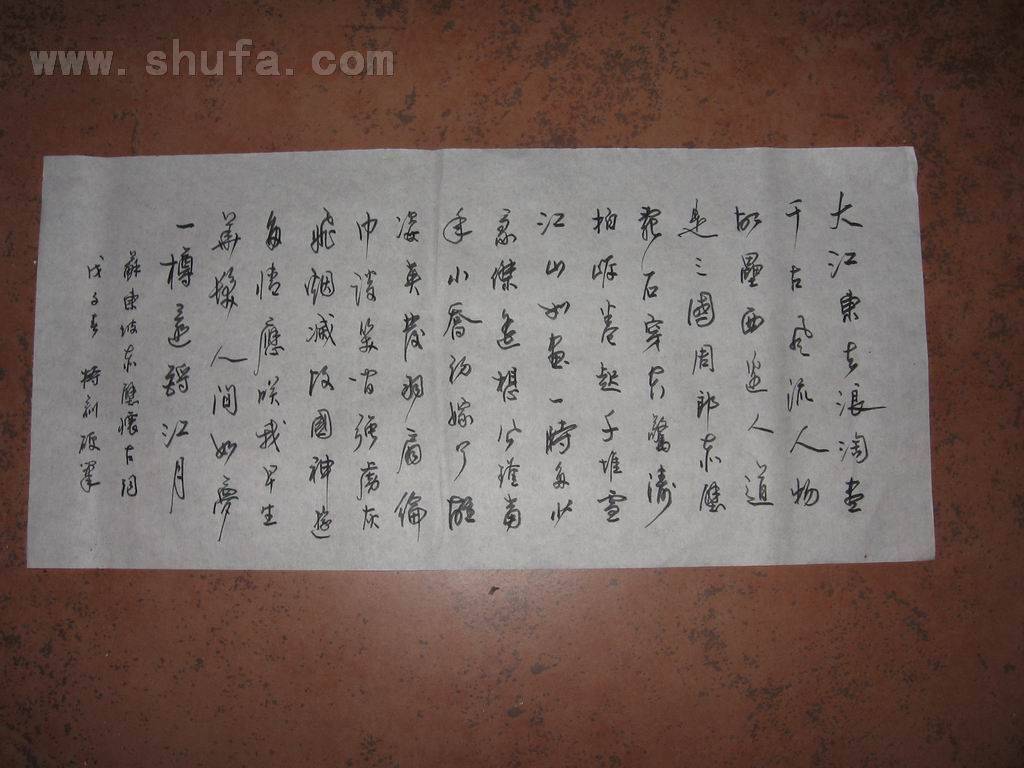 www.shufa.com
大江東去浪淘盡
千古風流人物
故壘西邊人道
是三國周郎赤壁
亂石穿空驚濤
拍岸卷起千堆雪
江山如畫一時多少
豪傑遙想公瑾當
年小喬初嫁了雄
姿英發羽扇倫
巾談笑间強虜灰
飛烟滅故國神遊
多情應笑我早生
華髮人间如夢
一樽還酹江月
蘇東坡赤壁懷古詞
戊子春 硬筆